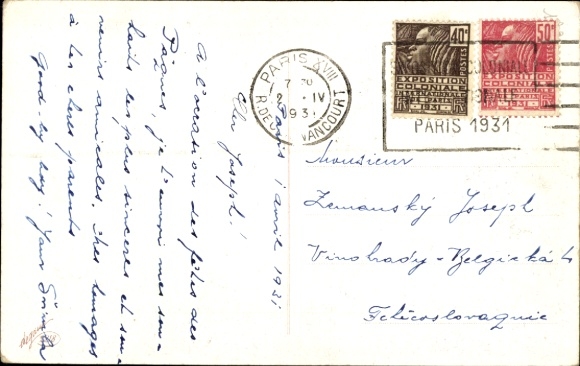 Paris 1 avril 1931
Cher Joseph!
A l'occasion des fêtes des
Pâques, je t'envoi mes sou-
haits les plus sinceres et sou-
venirs amicales. Mes homages
à tes chers parents
Good-by boy! Your
PARIS XVIII
7 30
2 - IV
1931
R. DES
40c
POSTES
EXPOSITION
COLONIALE
INTERNATIONALE
PARIS
1931
50c
POSTES
EXPOSITION
COLONIALE
INTERNATIONALE
PARIS
1931
COLONIALE
PARIS 1931
Monsieur
Zemanský Joseph
Vinohrady - Belgická 4
Tchécoslovaquie